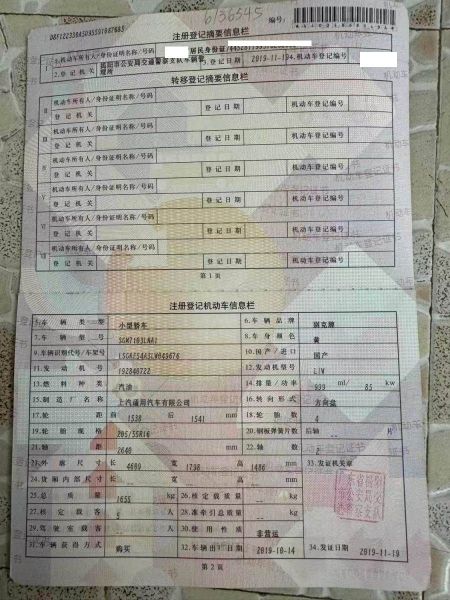 6/36545
注册登记摘要信息栏 编号:
1.机动车所有人/身份证明名称/号码 居民身份证/
2.登记机关 揭阳市公安局交通警察支队车辆管理所 3.登记日期 2019-11-19 4.机动车登记编号
转移登记摘要信息栏
Ⅱ 机动车所有人/身份证明名称/号码
登记机关 登记日期 机动车登记编号
Ⅲ 机动车所有人/身份证明名称/号码
登记机关 登记日期 机动车登记编号
Ⅳ 机动车所有人/身份证明名称/号码
登记机关 登记日期 机动车登记编号
Ⅴ 机动车所有人/身份证明名称/号码
登记机关 登记日期 机动车登记编号
Ⅵ 机动车所有人/身份证明名称/号码
登记机关 登记日期 机动车登记编号
Ⅶ 机动车所有人/身份证明名称/号码
登记机关 登记日期 机动车登记编号
第1页
注册登记机动车信息栏
5.车辆类型 小型轿车 6.车辆品牌 别克牌
7.车辆型号 8.车身颜色 黄
9.车辆识别代号/车架号 10.国产/进口 国产
11.发动机号 192840722 12.发动机型号 LIV
13.燃料种类 汽油 14.排量/功率 999 ml/ 85 kw
15.制造厂名称 上汽通用汽车有限公司 16.转向形式 方向盘
17.轮距 前 1538 后 1541 mm 18.轮胎数 4
19.轮胎规格 205/55R16 20.钢板弹簧片数 后轴 -- 片
21.轴距 2640 mm 22.轴数 2
23.外廓尺寸 长 4609 宽 1798 高 1486 mm 33.发证机关章
24.货厢内部尺寸 长 -- 宽 -- 高 -- mm
25.总质量 1655 kg 26.核定载质量 -- kg
27.核定载客 5 人 28.准牵引总质量 -- kg
29.驾驶室载客 -- 人 30.使用性质 非营运
31.车辆获得方式 购买 32.车辆出厂日期 2019-10-14 34.发证日期 2019-11-19
第2页